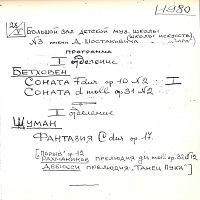 1980
28/V Большой зал детской муз. школы
(школы искусств)
№3 имени Д. Шостаковича
программа
I отделение
Бетховен
Соната Fdur op.10 №2
Соната d moll op.31 №2
I
II отделение
Шуман
Фантазия C dur op.17.
["Порыв" op.12
Рахманинов прелюдия gis moll op.32 №12
Дебюсси прелюдия "Танец Пука"]